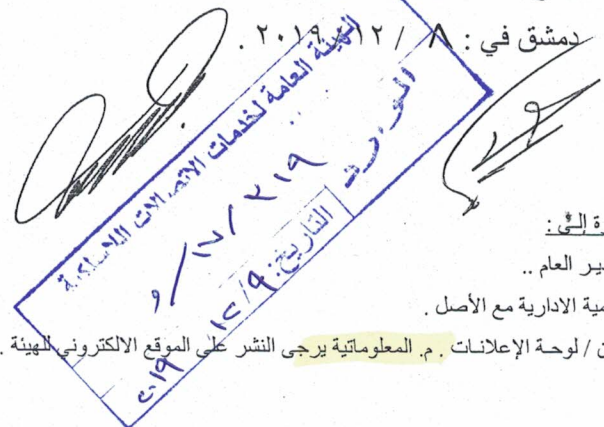 دمشق في : ٨ / ١٢ / ٢٠١٩ .
الهيئة العامة لخدمات الاتصالات اللاسلكية
التاريخ: ١٢/٩
٢٠١٩
ـير العام ..
ـمية الادارية مع الأصل .
/ لوحة الإعلانات . م. المعلوماتية يرجى النشر على الموقع الالكتروني للهيئة .